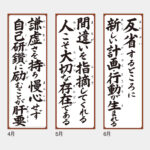 反省するところに
新しい計画行動が生まれる
間違いを指摘してくれる
人こそ大切な存在である
謙虚さを持ち慢心せず
自己研鑽に励むことが肝要
4月
5月
6月